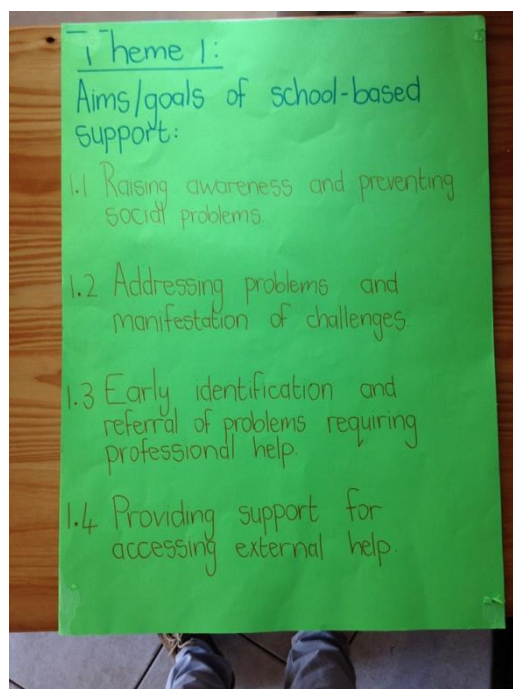 Theme 1:
Aims/goals of school-based
support:
1.1 Raising awareness and preventing
social problems.
1.2 Addressing problems and
manifestation of challenges.
1.3 Early identification and
referral of problems requiring
professional help.
1.4 Providing support for
accessing external help.